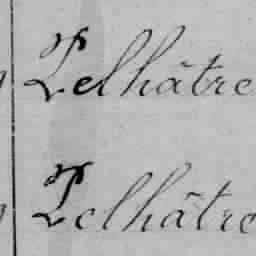 Pelhâtre
Pelhâtre